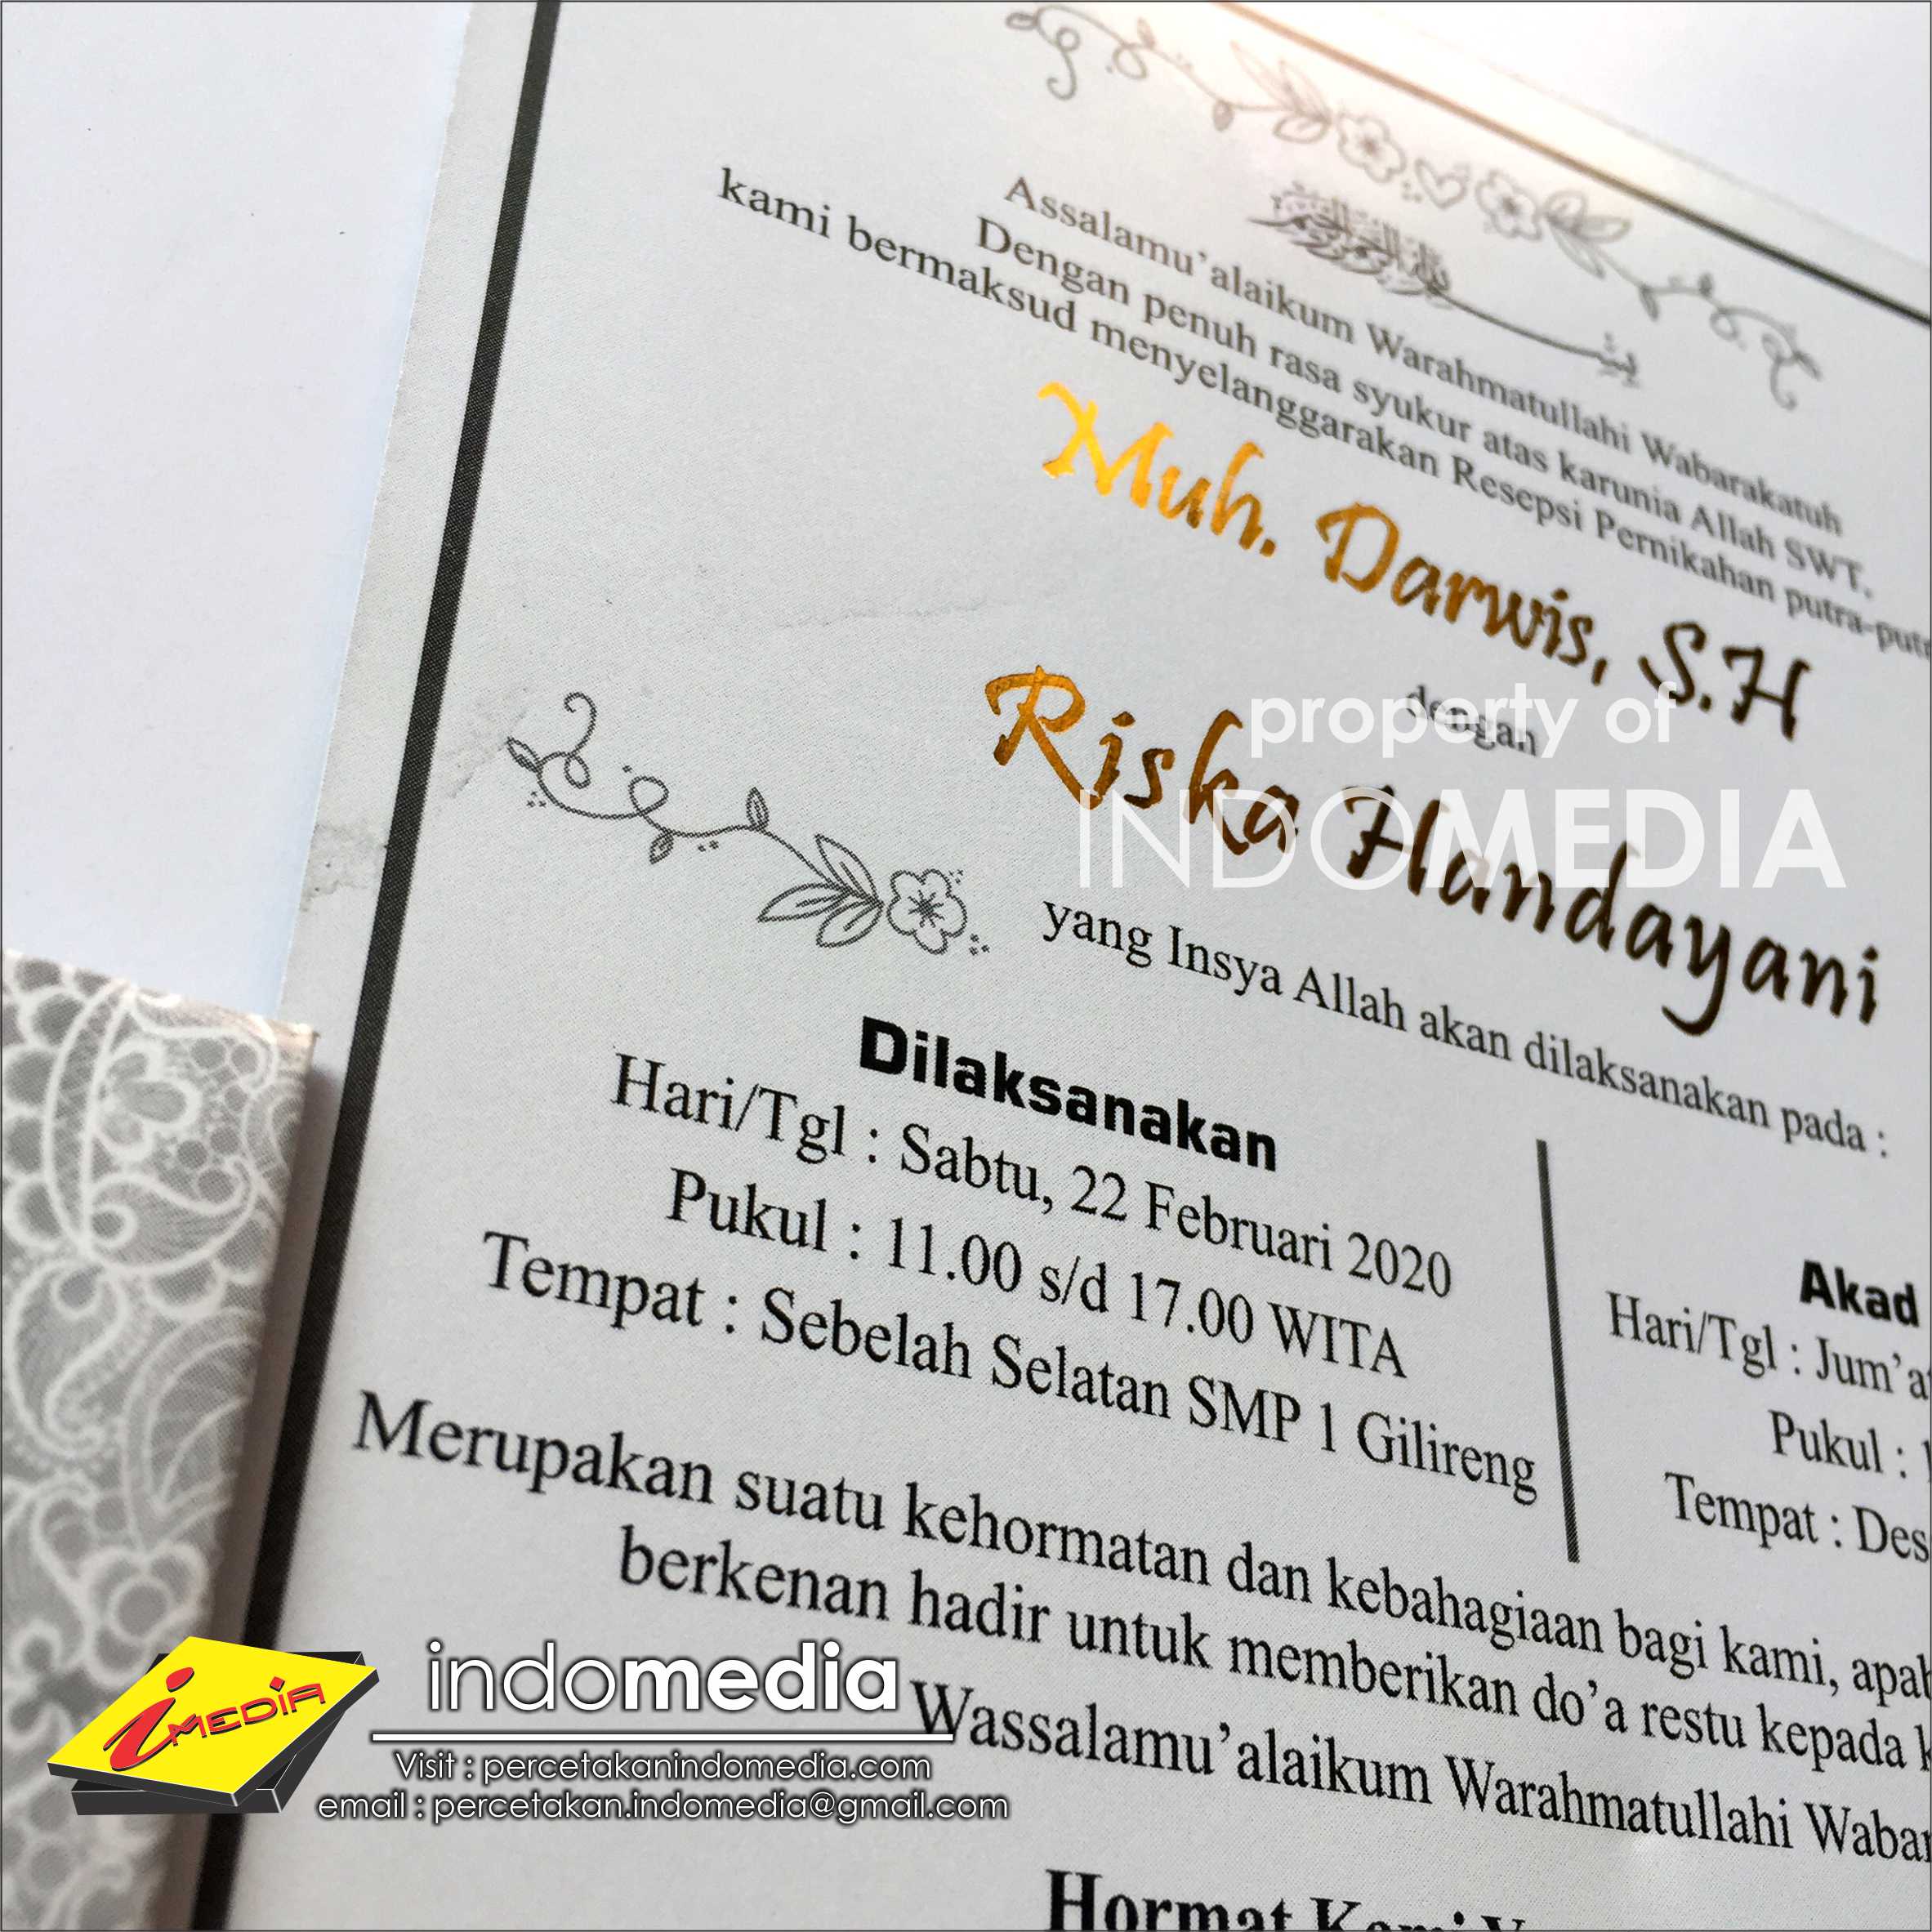 Assalamu’alaikum Warahmatullahi Wabarakatuh
Dengan penuh rasa syukur atas karunia Allah SWT.
kami bermaksud menyelanggarakan Resepsi Pernikahan
Muh. Darwis, S.H
dengan
property of
INDOMEDIA
Riska Handayani
yang Insya Allah akan dilaksanakan pada :
Dilaksanakan
Hari/Tgl : Sabtu, 22 Februari 2020
Pukul : 11.00 s/d 17.00 WITA
Tempat : Sebelah Selatan SMP 1 Gilireng
Akad
Hari/Tgl :
Pukul :
Tempat :
Merupakan suatu kehormatan dan kebahagiaan bagi kami,
berkenan hadir untuk memberikan do’a restu kepada
Wassalamu’alaikum Warahmatullahi
Hormat Kami
iMEDIA
indomedia
Visit : percetakanindomedia.com
email : percetakan.indomedia@gmail.com